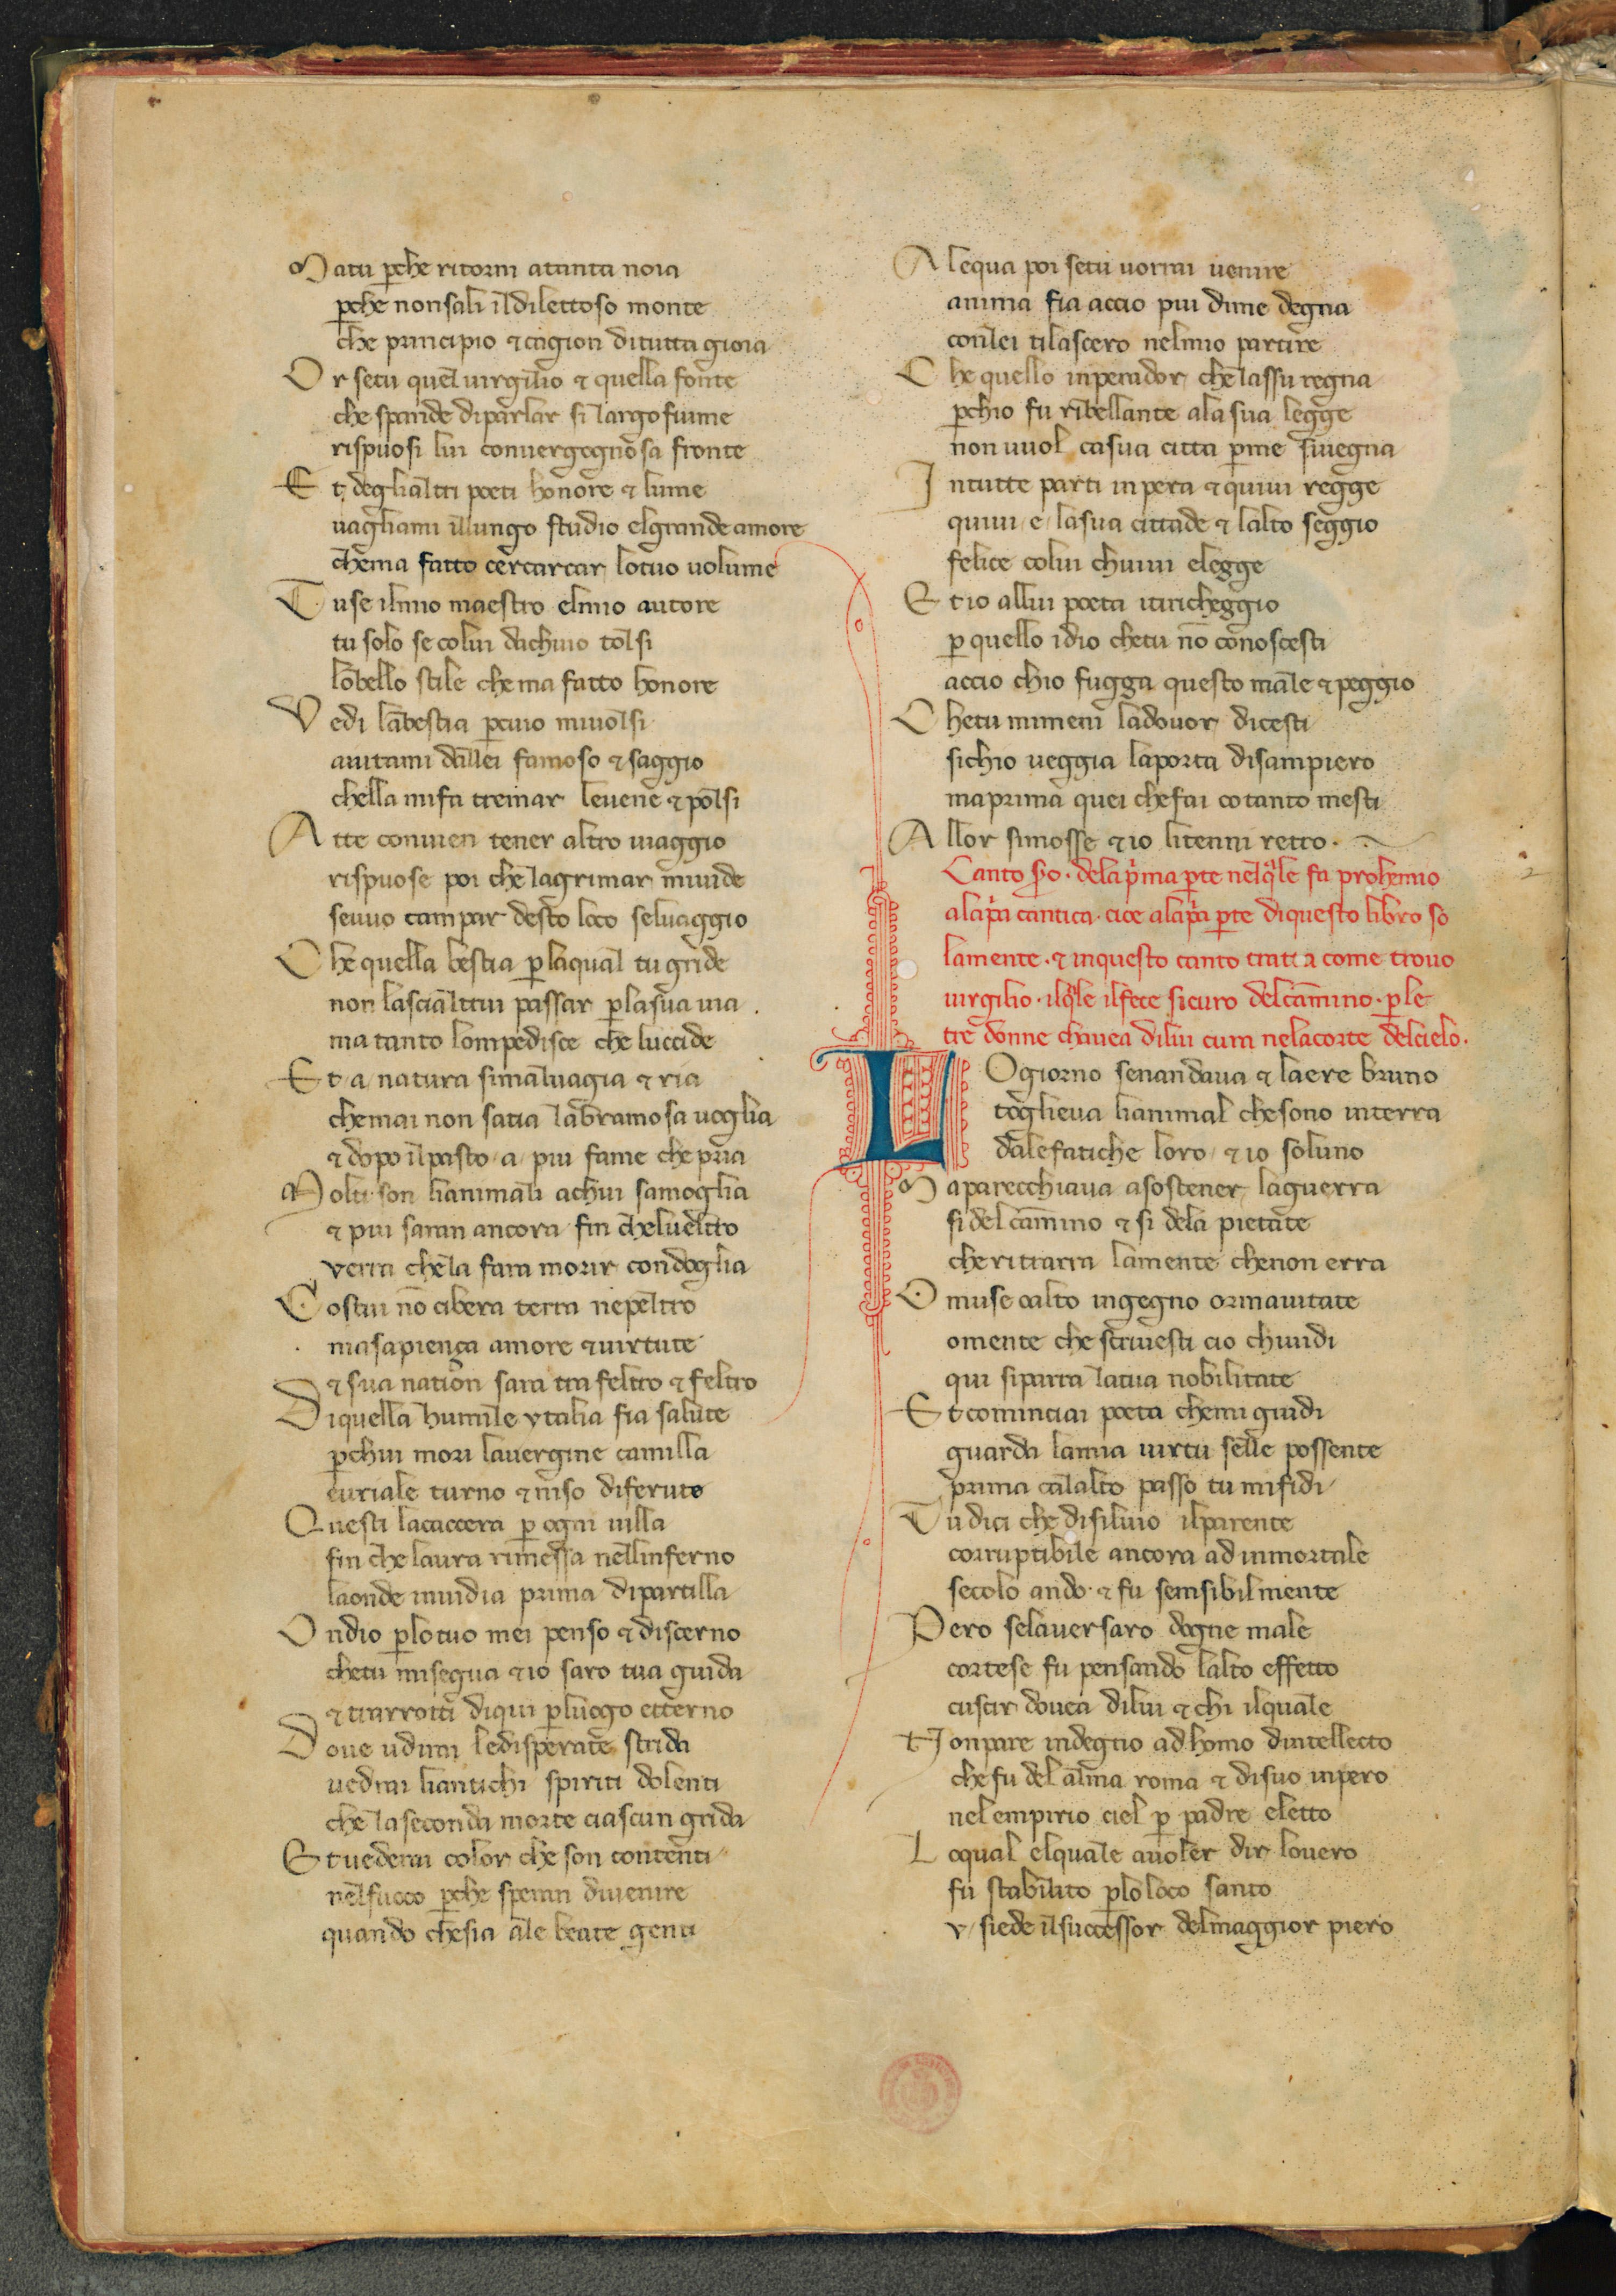 Matu ꝑche ritorni atanta noia
ꝑche nonsali ildilettoso monte
che principio ⁊ cagion ditutta gioia
Or setu quel uirgilio ⁊ quella fonte
che spande diparlar si largo fiume
rispuosi lui conuergognosa fronte
Et deglialtri poeti honore ⁊ lume
uagliami illungo studio elgrande amore
chema fatto cercarcar lotuo uolume
Tuse ilmio maestro elmio autore
tu solo se colui dachuio tolsi
lobello stile chema fatto honore
Vedi labestia ꝑcuio miuolsi
aiutami dallei famoso ⁊ saggio
chella mifa tremar leuene ⁊ polsi
Atte conuien tener altro uiaggio
rispuose poi che lagrimar miuide
seuuo campar desto loco seluaggio
Che quella bestia ꝑ laqual tu gride
non lascialtrui passar ꝑ lasua uia
ma tanto lompedisce che luccide
Et a natura simaluagia ⁊ ria
chemai non satia labramosa uoglia
⁊ dopo ilpasto a piu fame che pria
Molti son lianimali achui samoglia
⁊ piu saran ancora fin chelueltro
verra chela fara morir condoglia
Costui nō cibera terra nepeltro
masapiença amore ⁊ uirtute
⁊ sua nation sara tra feltro ⁊ feltro
Diquella humile ytalia fia salute
ꝑchui mori lauergine camilla
euriale turno ⁊ niso diferute
Questi lacaccera ꝑ ogni uilla
fin che laura rimessa nellinferno
laonde inuidia prima dipartilla
Ondio ꝑ lotuo mei penso ⁊ discerno
chetu misegua ⁊ io saro tua guida
⁊ trarrotti diqui ꝑ luogo etterno
Doue udirai ledisperate strida
uedrai liantichi spiriti dolenti
che laseconda morte ciascun grida
Et uederai color che son contenti
nelfuoco ꝑche speran diuenire
quando chesia ale beate genti
Alequa poi setu uorrai uenire
anima fia accio piu dime degna
conlei tilascero nelmio partire
Che quello inperador che lassu regna
ꝑchio fu ribellante alasua legge
non uuol casua citta ꝑ me siuegna
Intutte parti inpera ⁊ quiui regge
quiui e lasua cittade ⁊ lalto seggio
felice colui chuiui elegge
Et io allui poeta itiricheggio
ꝑ quello idio chetu nō conoscesti
accio chio fugga questo male ⁊ peggio
Chetu mimeni ladouor dicesti
sichio ueggia laporta disampiero
ma prima quei chefai cotanto mesti
Allor simosse ⁊ io litenni retto.
Canto s̄o. delap̄ma ꝑte nelq̄le fa prohemio
alap̄a cantica. cioe alap̄a ꝑte diquesto libro so
lamente. ⁊ inquesto canto tratta come trouo
uirgilio. ilq̄le ilfece sicuro delcammino. ꝑ le
tre donne chauea dilui cura nelacorte delcielo.
LOgiorno senandaua ⁊ laere bruno
toglieua lianimal chesono interra
dalefatiche loro ⁊ io soluno
Maparecchiaua asostener laguerra
si del cammino ⁊ si dela pietate
che ritrarra lamente chenon erra
O muse oalto ingegno ormaiutate
omente che scriuesti cio chiuidi
qui siparra latua nobilitate
Et cominciai poeta chemi guidi
guarda lamia uirtu selle possente
prima calalto passo tu mifidi
Tu dici che disiluio ilparente
corruptibile ancora ad inmortale
secolo ando ⁊ fu sensibilmente
Pero selauersaro dogne male
cortese fu pensando lalto effetto
cuscir douea dilui ⁊ chi ilquale
Nonpare indegno ad homo dintellecto
che fu del alma roma ⁊ disuo inpero
nel empirio ciel ꝑ padre eletto
Loqual elquale auoler dir louero
fu stabilito ꝑlo loco santo
v siede ilsuccessor delmaggior piero